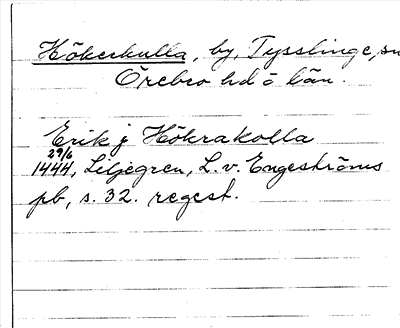 Hökerkulla, by, Tysslinge, sn
Örebro hd o län.
Erik j Hökrakolla
29/6
1444, Liljegren, L. v. Engeströms
pb, s. 32. regest.